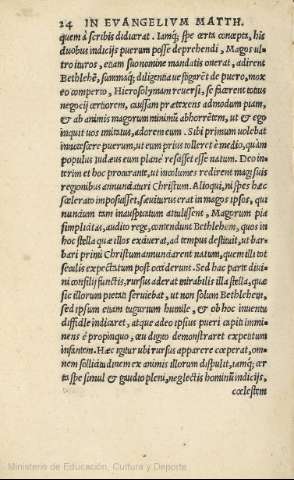 24 IN EVANGELIVM MATTH.
quem à scribis didicerat. Iamq́; spe certa concepta, his
duobus indicijs puerum posse deprehendi, Magos ul-
tro ituros, etiam suo nomine mandatis onerat, adirent
Bethlehē, summaq́; diligentia uestigarēt de puero, mox
eo comperto, Hierosolymam reuersi, se facerent totius
negocij certiorem, caussam prætexens admodum piam,
& ab animis magorum minimũ abhorrētem, ut & ego
inquit uos imitatus, adorem eum. Sibi primum uolebat
innotescere puerum, ut eum prius tolleret è medio, quàm
populus Iudæus eum planè resciisset esse natum. Deo in-
terim et hoc procurante, ut incolumes redirent magi suis
regionibus annunciaturi Christum. Alioqui, ni spes hæc
scelerato imposuisset, sæuiturus erat in magos ipsos, qui
nuncium tam inauspicatum attulissent, Magorum pia
simplicitas, audito rege, contendunt Bethlehem, quos in
hoc stella quæ illos exciuerat, ad tempus destituit, ut bar-
bari primi Christum annunciarent natum, quem illi tot
seculis expectatum post occiderunt. Sed hac parte diui-
ni consilij functis, rursus aderat mirabilis illa stella, quæ
sic illorum pietati seruiebat, ut non solum Bethlehem,
sed ipsum etiam tugurium humile, & ob hoc inuentu
difficile indicaret, atque adeo ipsius pueri capiti immi-
nens è propinquo, ceu digito demonstraret expetitum
infantem. Hæc igitur ubi rursus apparere cœperat, om-
nem sollicitudinem ex animis illorum dispulit, iamq́; cer-
ta spe simul & gaudio pleni, neglectis hominũ indicijs,
cœlestem
Ministerio de Educación, Cultura y Deporte